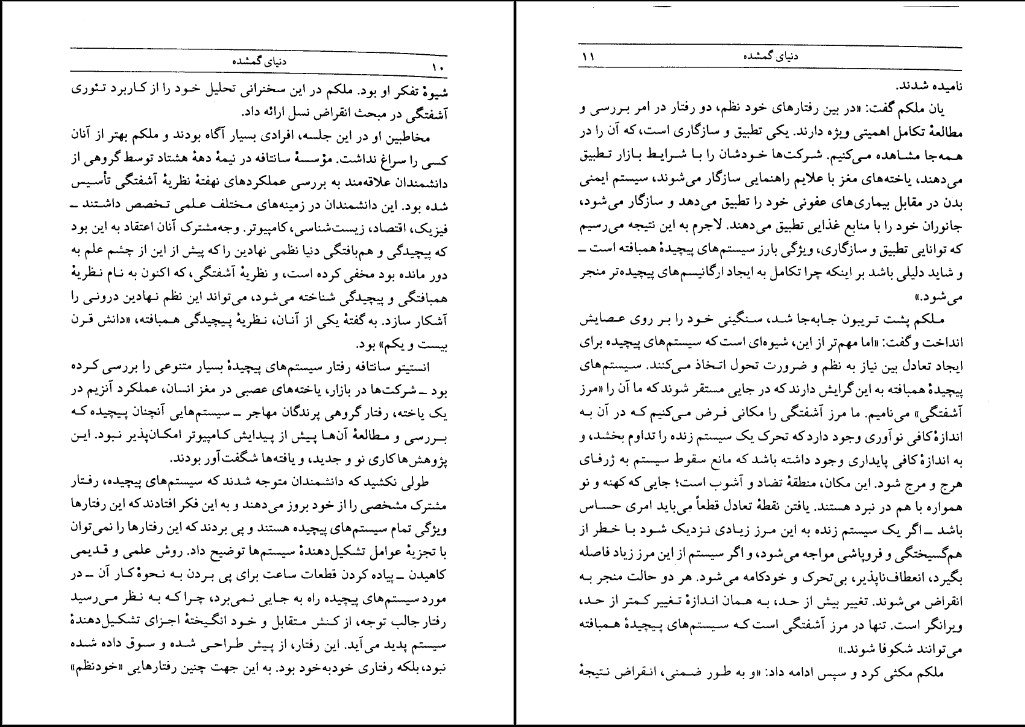 ۱۰
دنیای گمشده
شیوهٔ تفکر او بود. ملکم در این سخنرانی تحلیل خود را از کاربرد تئوری
آشفتگی در مبحث انقراض نسل ارائه داد.
مخاطبین او در این جلسه، افرادی بسیار آگاه بودند و ملکم بهتر از آنان
کسی را سراغ نداشت. مؤسسهٔ سانتافه در نیمهٔ دههٔ هشتاد توسط گروهی از
دانشمندان علاقه‌مند به بررسی عملکردهای نهفتهٔ نظریهٔ آشفتگی تأسیس
شده بود. این دانشمندان در زمینه‌های مختلف علمی تخصص داشتند ــ
فیزیک، اقتصاد، زیست‌شناسی، کامپیوتر. وجه‌مشترک آنان اعتقاد به این بود
که پیچیدگی و هم‌بافتگی دنیا نظمی نهادین را که پیش از این از چشم علم به
دور مانده بود مخفی کرده است، و نظریهٔ آشفتگی، که اکنون به نام نظریهٔ
همبافتگی و پیچیدگی شناخته می‌شود، می‌تواند این نظم نهادین درونی را
آشکار سازد. به گفتهٔ یکی از آنان، نظریهٔ پیچیدگی همبافته، «دانش قرن
بیست و یکم» بود.
انستیتو سانتافه رفتار سیستم‌های پیچیدهٔ بسیار متنوعی را بررسی کرده
بود ــ شرکت‌ها در بازار، یاخته‌های عصبی در مغز انسان، عملکرد آنزیم در
یک یاخته، رفتار گروهی پرندگان مهاجر ــ سیستم‌هایی آنچنان پیچیده که
بررسی و مطالعهٔ آن‌ها پیش از پیدایش کامپیوتر امکان‌پذیر نبود. این
پژوهش‌ها کاری نو و جدید، و یافته‌ها شگفت‌آور بودند.
طولی نکشید که دانشمندان متوجه شدند که سیستم‌های پیچیده، رفتار
مشترک مشخصی را از خود بروز می‌دهند و به این فکر افتادند که این رفتارها
ویژگی تمام سیستم‌های پیچیده هستند و پی بردند که این رفتارها را نمی‌توان
با تجزیهٔ عوامل تشکیل‌دهندهٔ سیستم‌ها توضیح داد. روش علمی و قدیمی
کاهیدن ــ پیاده کردن قطعات ساعت برای پی بردن به نحوهٔ کار آن ــ در
مورد سیستم‌های پیچیده راه به جایی نمی‌برد، چرا که به نظر می‌رسید
رفتار جالب توجه، از کنش متقابل و خود انگیختهٔ اجزای تشکیل‌دهندهٔ
سیستم پدید می‌آید. این رفتار، از پیش طراحی شده و سوق داده شده
نبود، بلکه رفتاری خودبه‌خود بود. به این جهت چنین رفتارهایی «خودنظم»
دنیای گمشده
۱۱
نامیده شدند.
یان ملکم گفت: «در بین رفتارهای خود نظم، دو رفتار در امر بررسی و
مطالعهٔ تکامل اهمیتی ویژه دارند. یکی تطبیق و سازگاری است، که آن را در
همه‌جا مشاهده می‌کنیم. شرکت‌ها خودشان را با شرایط بازار تطبیق
می‌دهند، یاخته‌های مغز با علایم راهنمایی سازگار می‌شوند، سیستم ایمنی
بدن در مقابل بیماری‌های عفونی خود را تطبیق می‌دهد و سازگار می‌شود،
جانوران خود را با منابع غذایی تطبیق می‌دهند. لاجرم به این نتیجه می‌رسیم
که توانایی تطبیق و سازگاری، ویژگی بارز سیستم‌های پیچیدهٔ همبافته است ــ
و شاید دلیلی باشد بر اینکه چرا تکامل به ایجاد ارگانیسم‌های پیچیده‌تر منجر
می‌شود.»
ملکم پشت تریبون جابه‌جا شد، سنگینی خود را بر روی عصایش
انداخت و گفت: «اما مهم‌تر از این، شیوه‌ای است که سیستم‌های پیچیده برای
ایجاد تعادل بین نیاز به نظم و ضرورت تحول اتخاذ می‌کنند. سیستم‌های
پیچیدهٔ همبافته به این گرایش دارند که در جایی مستقر شوند که ما آن را «مرز
آشفتگی» می‌نامیم. ما مرز آشفتگی را مکانی فرض می‌کنیم که در آن به
اندازهٔ کافی نوآوری وجود دارد که تحرک یک سیستم زنده را تداوم بخشد، و
به اندازهٔ کافی پایداری وجود داشته باشد که مانع سقوط سیستم به ژرفای
هرج و مرج شود. این مکان، منطقهٔ تضاد و آشوب است؛ جایی که کهنه و نو
همواره با هم در نبرد هستند. یافتن نقطهٔ تعادل قطعاً می‌باید امری حساس
باشد ــ اگر یک سیستم زنده به این مرز زیادی نزدیک شود با خطر از
هم‌گسیختگی و فروپاشی مواجه می‌شود، و اگر سیستم از این مرز زیاد فاصله
بگیرد، انعطاف‌ناپذیر، بی‌تحرک و خودکامه می‌شود. هر دو حالت منجر به
انقراض می‌شوند. تغییر بیش از حد، به همان اندازهٔ تغییر کمتر از حد،
ویرانگر است. تنها در مرز آشفتگی است که سیستم‌های پیچیدهٔ همبافته
می‌توانند شکوفا شوند.»
ملکم مکثی کرد و سپس ادامه داد: «و به طور ضمنی، انقراض نتیجهٔ